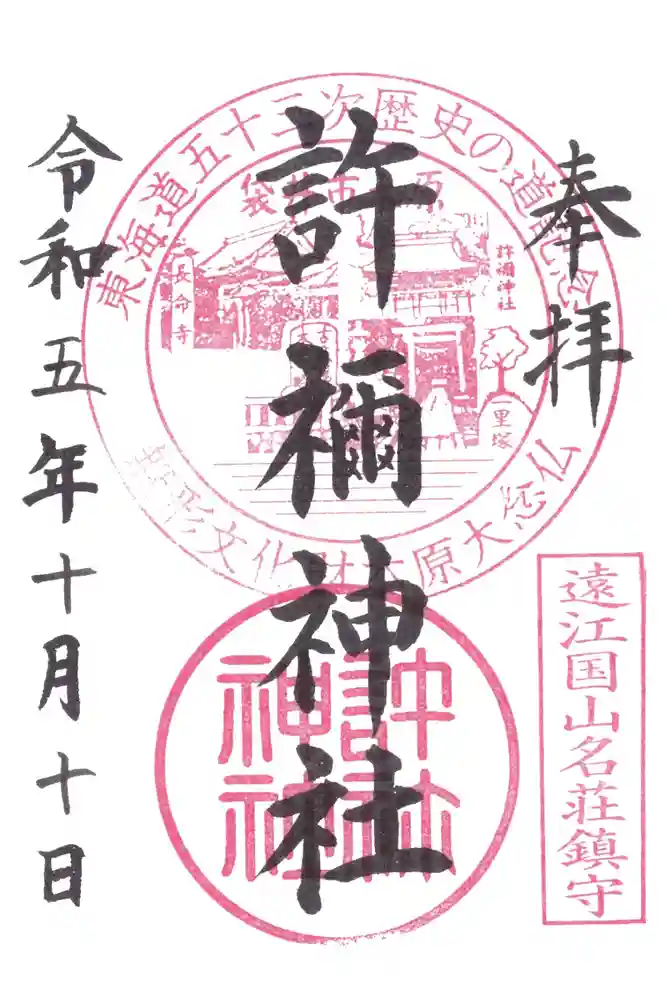 奉拝
東海道五十三次歴史の道記念
袋井市 原
長命寺
許禰神社
里塚
形文化財木原大念仏
許禰神社
許禰神社
遠江国山名荘鎮守
令和五年十月十日